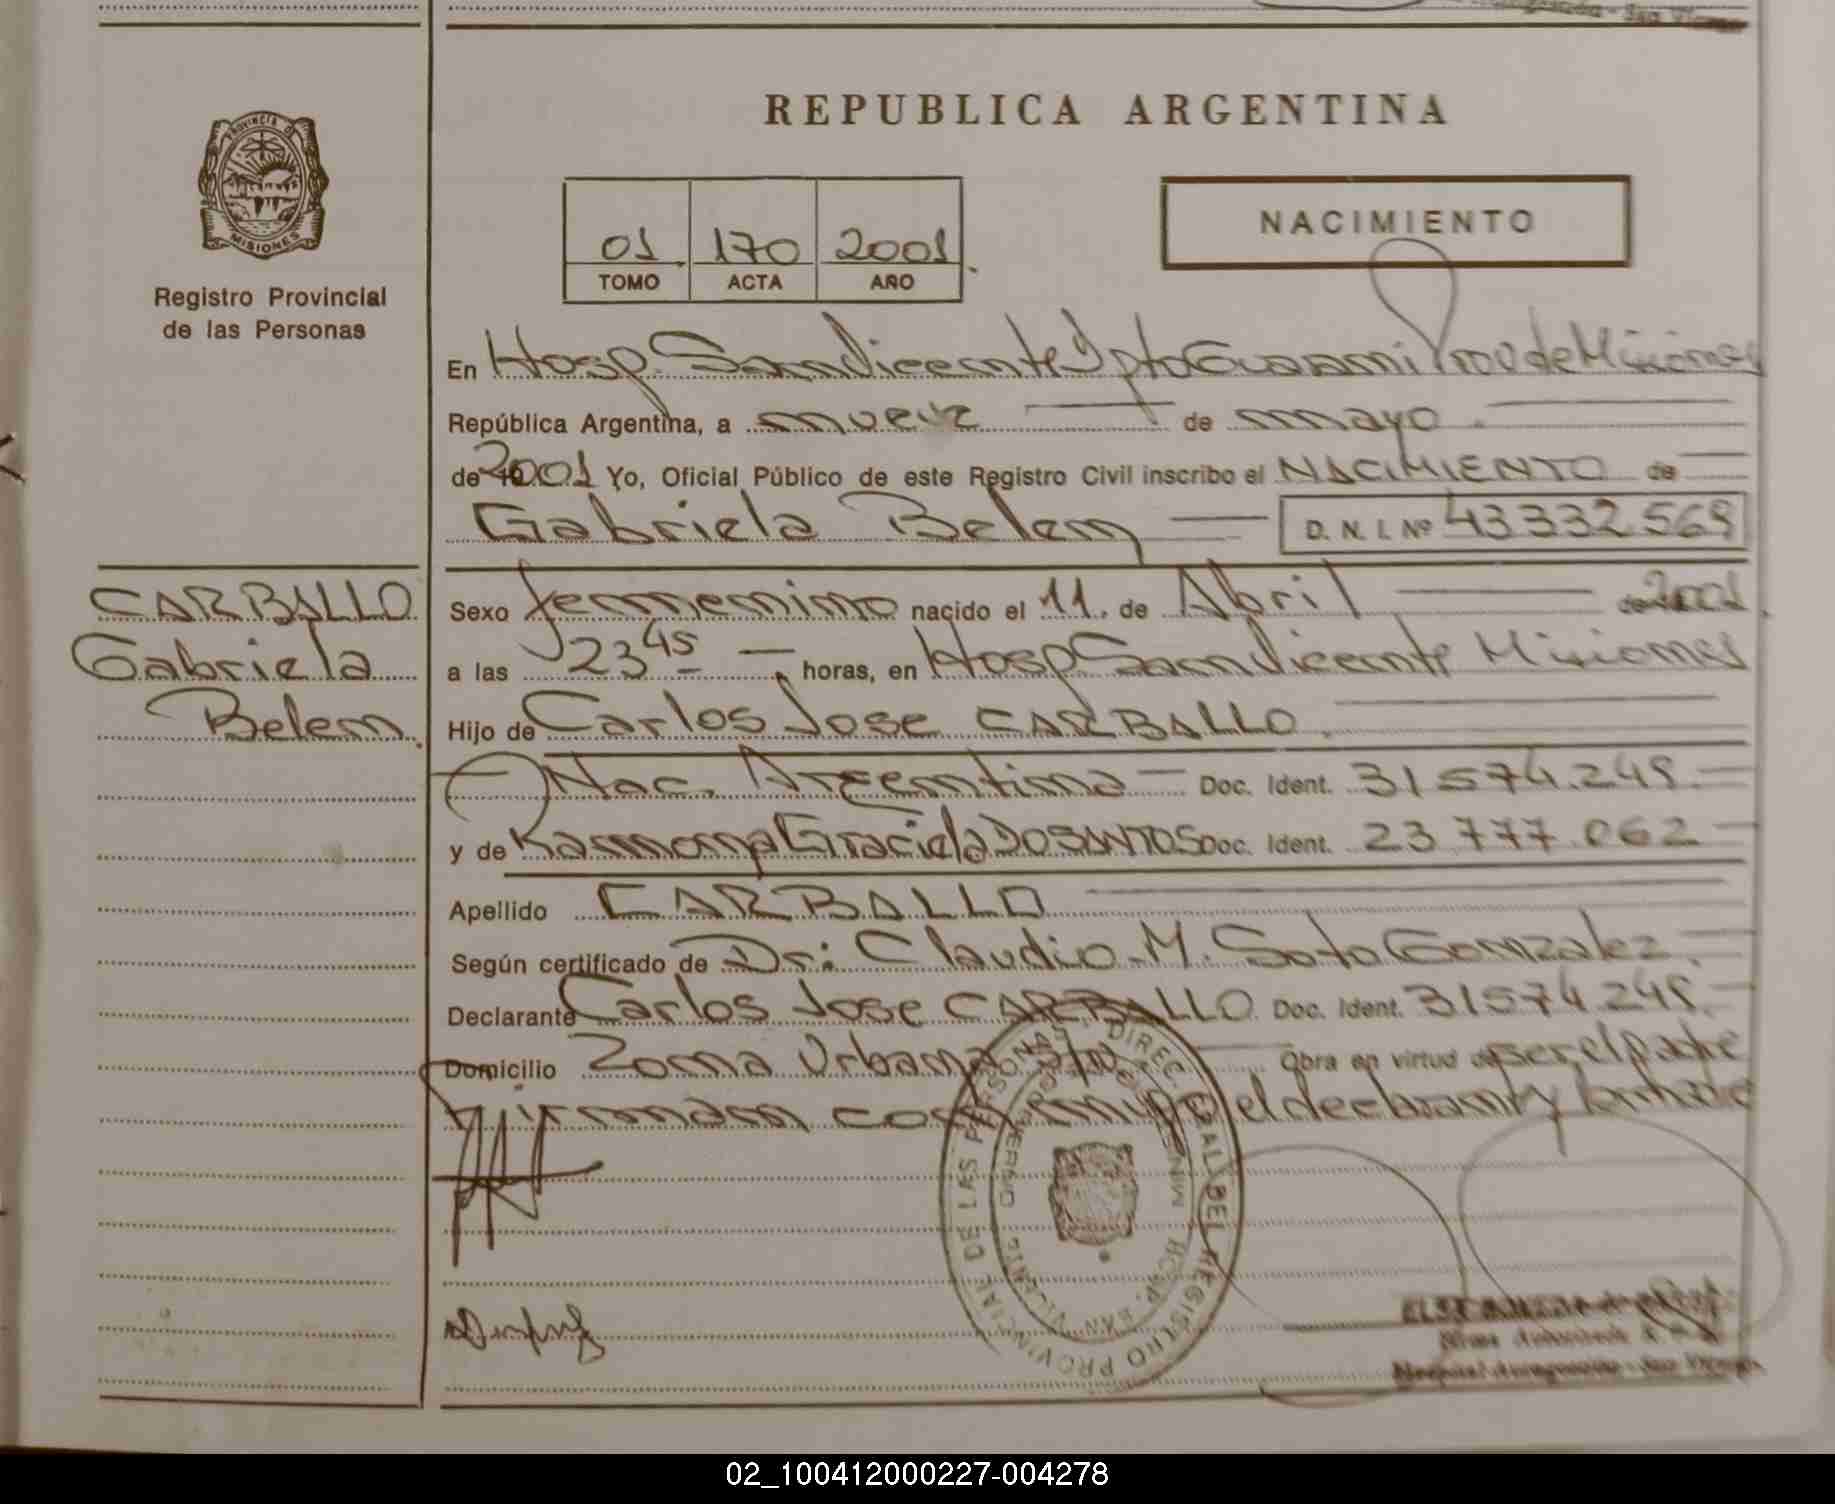 REPUBLICA ARGENTINA
PROVINCIA DE
MISIONES
Registro Provincial
de las Personas
01 170 2001
TOMO ACTA AÑO
NACIMIENTO
En Hosp. San Vicente Dpto Guarani Prov de Misiones
República Argentina, a nueve de mayo
de 2001 Yo, Oficial Público de este Registro Civil inscribo el NACIMIENTO de
Gabriela Belen D. N. I. Nº 43332569
CARBALLO
Gabriela
Belen
Sexo femenino nacido el 11 de Abril de 2001
a las 23 45 horas, en Hosp San Vicente Misiones
Hijo de Carlos Jose CARBALLO
Nac. Argentina Doc. Ident. 31574.249
y de Ramona Graciela DOSANTOS Doc. Ident. 23 777.062
Apellido CARBALLO
Según certificado de Dr: Claudio M. Soto Gonzalez
Declarante Carlos Jose CARBALLO Doc. Ident. 31574 249
Domicilio Zona Urbana Obra en virtud de ser el padre
Firman conmigo el declarante y la madre
DIREC. GRAL DEL REGISTRO PROVINCIAL DE LAS PERSONAS
HOSP. SAN VICENTE
02_100412000227-004278